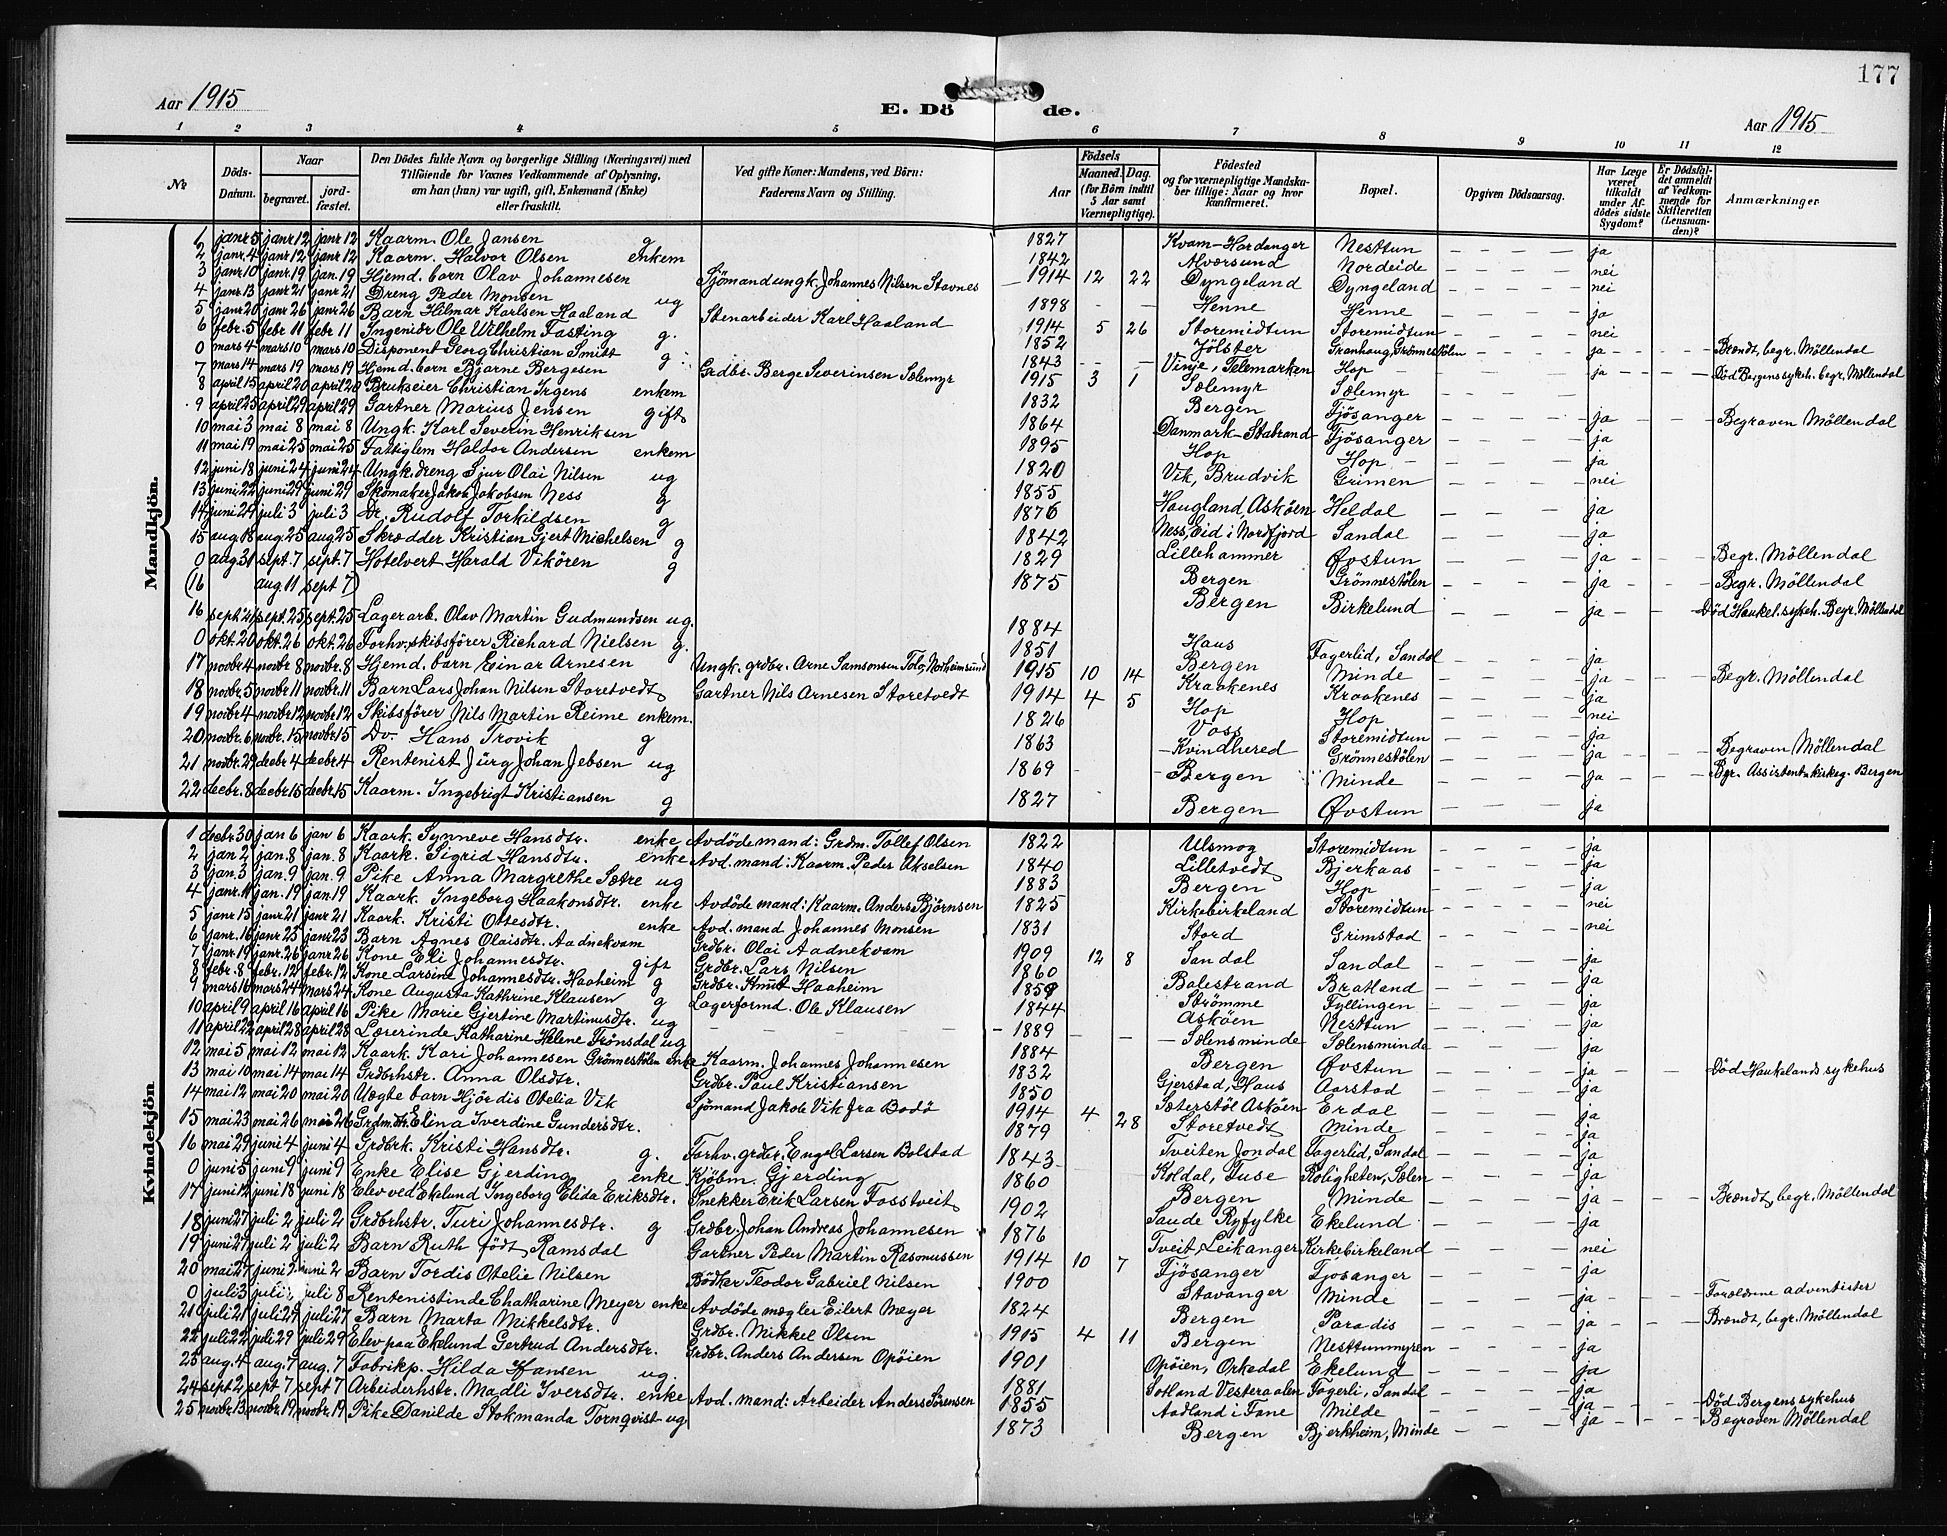 177
Aar 1915
E. Dö de.
Aar 1915
1 2 3 4 5 6 7 8 9 10 11 12
№
Döds-Datum.
Naar
begravet.
jord-fæstet.
Den Dödes fulde Navn og borgerlige Stilling (Næringsvei) med
Tilföiende for Voxnes Vedkommende af Oplysning,
om han (hun) var ugift, gift, Enkemand (Enke)
eller fraskilt.
Ved gifte Koner: Mandens, ved Börn:
Faderens Navn og Stilling.
Födsels
Aar
Maaned. Dag.
(for Börn indtil
5 Aar samt
Værnepligtige).
Födested
og for værnepligtige Mandska-
ber tillige: Naar og hvor
kunfirmeret.
Bopæl.
Opgiven Dödsaarsag.
Har Læge
været
tilkaldt
under Af-
dödes sidste
Sygdom?
Er Dödsfal-
det anmeldt
af Vedkom-
mende for
Skifteretten
(Lensman-
den)?
Anmærkninger
Mandkjön.
1 janr 5 janr 12 janr 12 Kaarm. Ole Jansen g 1827 Kvam-Hardanger Nesttun ja
2 janr. 4 janr 12 janr 12 Kaarm. Halvor Olsen enkem 1842 Alversund Nordeide nei
3 janr 10 janr. 19 jan. 19 Hjemd. barn Olav Johannesen Sjömand ungk. Johannes Nilsen Stavnes 1914 12 22 Dyngeland Dyngeland nei
4 janr. 13 janr 21 janr 21 Dreng Peder Monsen ug 1898 Henne Henne ja
5 janr 20 janr 26 janr 26 Barn Hilmar Karlsen Haaland Stenarbeider Karl Haaland 1914 5 26 Storemidtun Storemidtun nei
6 febr. 5 febr 11 febr 11 Ingeniör Ole Wilhelm Fasting g. 1852 Jölster Granhaug, Grönnestölen ja Brændt, begr. Möllendal
0 mars 4 mars 10 mars 10 Disponent Georg Christian Smitt g 1843 Vinje, Telemarken Hop ja Död Bergens sykeh. begr. Möllendal
7 mars 14 mars 19 mars 19 Hjemd. barn Bjarne Bergesen Grdbr. Berge Severinsen Sælemyr 1915 3 1 Sælemyr Sælemyr
8 april 15 april 20 april 20 Brukseier Christian Irgens enkem 1832 Bergen Fjösanger ja Begraven Möllendal
9 april 25 april 29 april 29 Gartner Marius Jensen gift 1864 Danmark-Stabrand Fjösanger ja
10 mai 3 mai 8 mai 8 Ungk. Karl Severin Henriksen 1895 Hop Hop ja
11 mai 19 mai 25 mai 25 Fattiglem Haldor Andersen enkem 1820 Vik, Brudvik Grimen nei
12 juni 18 juni 24 juni 24 Ungk. dreng Sjur Olai Nilsen ug 1855 Haugland, Asköen Heldal ja
13 juni 22 juni 29 juni 29 Skomaker Jakob Jakobsen Ness g 1876 Ness, Eid i Nordfjord Sandal ja
14 juni 24 juli 3 juli 3 Dr. Rudolf Torkildsen g 1842 Lillehammer Øvstun ja Begr. Möllendal
15 aug. 18 aug. 25 aug 25 Skrædder Kristian Gjert Michelsen g 1829 Bergen Grönnestölen ja Begr. Möllendal
0 aug 31 sept. 7 sept. 7 Hotelvert Harald Vikören g 1875 Bergen Birkelund ja Död Haukel. sykeh. Begr. Möllendal
(16 aug 11 sept 7)
16 sept 21 sept. 25 sept. 25 Lagerarb. Olav Martin Gudmundsen ug. 1884 Haus Fagerlid, Sandal ja
0 okt. 20 okt. 26 okt. 26 Forhv. skibsförer Richard Nielsen g. 1851 Bergen Minde ja Begr. Möllendal
17 novbr 4 novbr 8 novbr. 8 Hjemd. barn Einar Arnesen Ungk. grdbr. Arne Samsonsen Tolo, Norheimsund 1915 10 14 Kraakenes Kraakenes ja
18 novbr. 5 novbr 11 novbr. 11 Barn Lars Johan Nilsen Storetvedt Gartner Nils Arnesen Storetvedt 1914 4 5 Hop Hop nei
19 novbr 4 novbr 12 novbr 12 Skibsförer Nils Martin Reime enkem. 1826 Voss Storemidtun ja
20 novbr. 6 novbr. 15 novbr 15 Do. Hans Trovik g 1863 Kvindhered Grönnestölen ja Begraven Möllendal
21 novbr. 29 decbr 4 decbr. 4 Rentenist Jürg Johan Jebsen ug 1869 Bergen Minde ja Bgr. Assistentskirkeg. Bergen
22 decbr. 8 decbr 15 decbr. 15 Kaarm. Ingebrigt Kristiansen g 1827 Bergen Øvstun ja
Kvindekjön
1 decbr 30 jan 6 jan 6 Kaark. Synneve Hansdtr. enke Avdöde mand: Grdm. Tollef Olsen 1822 Ulsmog Storemidtun ja
2 jan 2 jan. 8 jan. 8 Kaark. Sigrid Hansdtr. enke Avd. mand: Kaarm. Peder Akselsen 1840 Lilletvedt Bjerkaas ja
3 jan. 3 jan. 9 jan. 9 Pike Anna Margrethe Sætre ug 1883 Bergen Hop ja
4 janr. 11 jan. 19 jan. 19 Kaark. Ingeborg Haakonsdtr. enke Avdöde mand: Kaarm. Anders Björnsen 1825 Kirkebirkeland Storemidtun nei
5 janr 15 janr 21 janr 21 Kaark. Kristi Ottesdtr. enke Avd. mand Johannes Monsen 1831 Stord Grimstad nei
6 janr. 16 janr 23 janr 23 Barn Agnes Olaisdtr. Aadnekvam Grdbr. Olai Aadnekvam 1909 12 8 Sandal Sandal ja
7 janr. 19 janr. 26 janr 26 Kone Eli Johannesdtr. gift Grdbr. Lars Nilsen 1860 Balestrand Bratland ja
8 febr. 8 febr. 12 febr. 12 Kone Larsine Johannesdtr. Haaheim g Grdbr. Knut Haaheim 1859 Strömme Fyllingen ja
9 mars 16 mars 24 mars 24 Kone Augusta Kathrine Klausen g Lagerformd. Ole Klausen 1844 Asköen Nesttun ja
10 april 9 april 16 april 16 Pike Marie Gjertine Martinusdtr. ug 1889 Sælensminde Sælensminde ja
11 april 22 april 28 april 28 Lærerinde Katharine Helene Frönsdal ug 1884 Bergen Øvstun ja Död Haukelands sykehus
12 mai 5 mai 12 mai 12 Kaark. Kari Johannesen Grönnestölen enke Kaarm. Johannes Johannesen 1832 Gjerstad, Haus Aarstad ja
13 mai 10 mai 14 mai 14 Grdbrhstr. Anna Olsdtr. Grdbr. Paul Kristiansen 1850 Sæterstöl Asköen Erdal ja
14 mai 12 mai 20 mai 20 Uægte barn Hjördis Otelia Vik Sjömand Jakob Vik fra Bodö 1914 4 28 Storetvedt Minde ja
15 mai 23 mai 26 mai 26 Grdm.dtr. Elina Iverdine Gundersdtr. 1879 Tveiten Jondal Fagerlid, Sandal ja
16 mai 29 juni 4 juni 4 Grdbrk. Kristi Hansdtr. g. Forhv. grdbr. Engel Larsen Bolstad 1843 Koldal, Fuse Roligheten, Sælen ja
0 juni 5 juni 9 juni 9 Enke Elise Gjerding enke Kjöbm. Gjerding 1860 Bergen Minde ja Brændt, begr. Möllendal
17 juni 12 juni 18 juni 18 Elev ved Ekelund Ingeborg Elida Eriksdtr. Snekker Erik Larsen Fosstveit 1902 Saude Ryfylke Ekelund ja
18 juni 27 juli 2 juli 2 Grdbrhstr. Turi Johannesdtr. g Grdbr. Johan Andreas Johannesen 1876 Tveit, Leikanger Kirkebirkeland nei
19 juni 27 juli 2 juli 2 Barn Ruth födt Ramsdal Gartner Peder Martin Rasmussen 1914 10 7 Fjösanger Fjosanger ja
20 mai 27 juni 2 juni 2 Barn Tordis Otelie Nilsen Bödker Teodor Gabriel Nilsen 1900 Stavanger Minde ja Forældrene adventister
0 juli 3 juli juli 8 Rentenistinde Chatharine Meyer enke Avdöde mægler Eilert Meyer 1824 Bergen Paradis ja Brændt, begr. Möllendal
21 juli 21 juli 27 juli 27 Barn Marta Mikkelsdtr. Grdbr. Mikkel Olsen 1915 4 11 Bergen Nesttunmyren ja
22 juli 22 juli 29 juli 29 Elev paa Ekelund Gertrud Andersdtr. Grdbr. Anders Andersen Opöien 1901 Opöien, Orkedal Ekelund ja
23 aug. 4 aug. 7 aug. 7 Fabrikp. Hilda Hansen ug. 1881 Sotland Vesteraalen Fagerli, Sandal ja
24 sept 2 sept 7 sept 7 Arbeiderhstr. Madli Iversdtr. enke Avd. mand: Arbeider Anders Sörensen 1855 Aadland i Fane Milde ja Död Bergens sykehus
25 novbr 13 novbr 19 novbr. 19 Pike Danilde Stokmanda Tornqvist ug 1873 Bergen Bjerkheim, Minde ja Begraven Möllendal